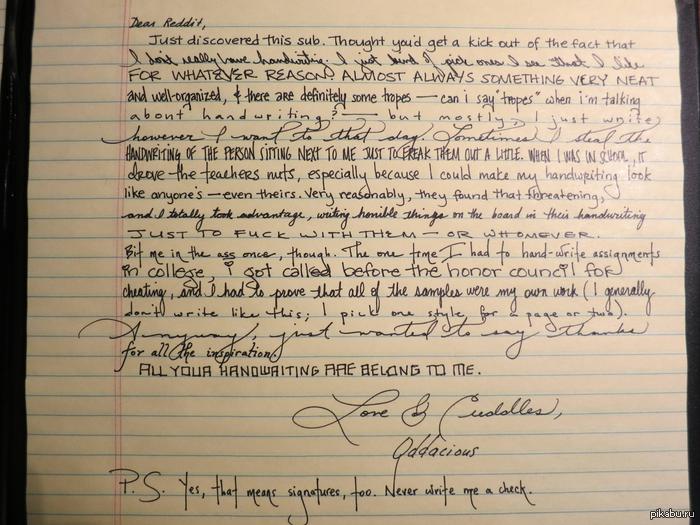 Dear Reddit,
Just discovered this sub. Thought you'd get a kick out of the fact that
I don't really have handwriting. I just kind of pick ones I see that I like
FOR WHATEVER REASON. ALMOST ALWAYS SOMETHING VERY NEAT
and well-organized, & there are definitely some tropes — can i say "tropes" when i'm talking
about handwriting? — but mostly, I just write
however I want to that day. Sometimes I steal the
HANDWRITING OF THE PERSON SITTING NEXT TO ME JUST TO FREAK THEM OUT A LITTLE. WHEN I WAS IN SCHOOL, IT
drove the teachers nuts, especially because I could make my handwriting look
like anyone's — even theirs. Very reasonably, they found that threatening,
and I totally took advantage, writing horrible things on the board in their handwriting
JUST TO FUCK WITH THEM — OR WHOMEVER.
Bit me in the ass once, though. The one time I had to hand-write assignments
in college, i got called before the honor council for
cheating, and I had to prove that all of the samples were my own work (I generally
don't write like this; I pick one style for a page or two).
Anyway, just wanted to say thanks
for all the inspiration.
ALL YOUR HANDWRITING ARE BELONG TO ME.
Love & Cuddles,
Oddacious
P.S. Yes, that means signatures, too. Never write me a check.
pikabu.ru